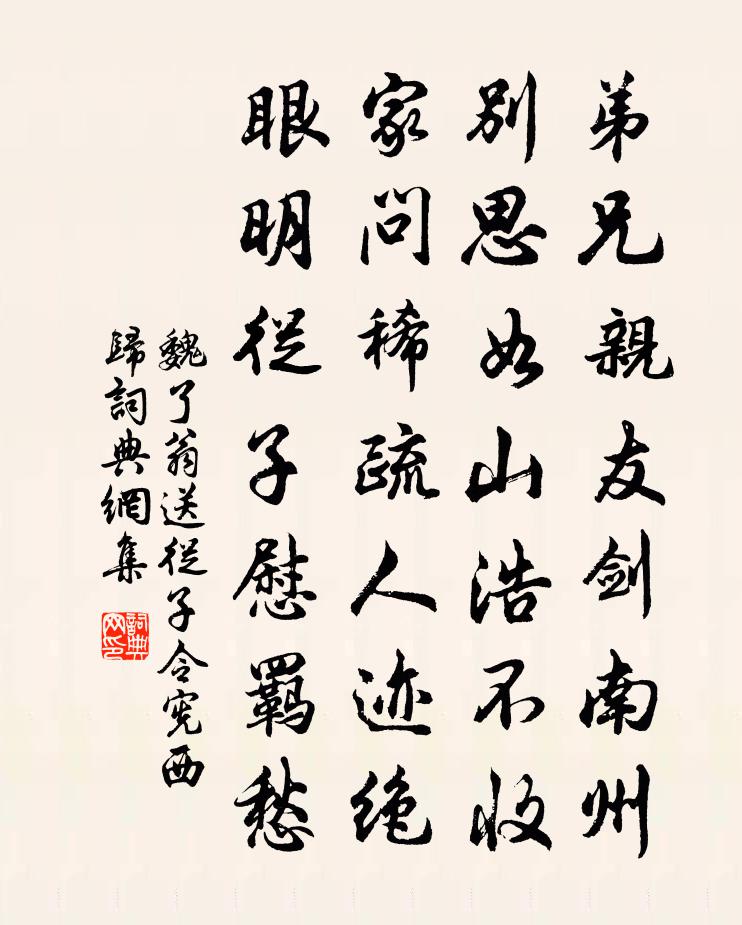 弟兄親友剑南州
别思如山浩不收
家問稀疏人迹绝
眼明從子慰羁愁
魏了翁送從子令宪西
歸詞典網集
詞典
网印